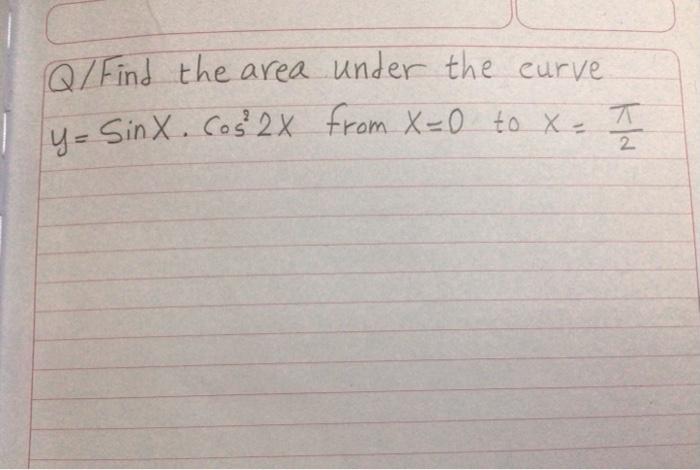 Q/Find the area under the curve
y = Sinx . Cos² 2x from x=0 to x = π/2